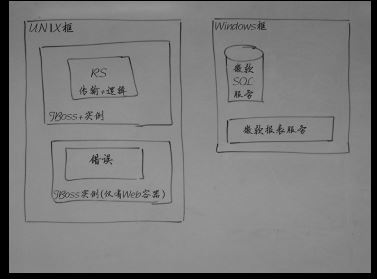 UNIX框
RS
传输+逻辑
JBoss+实例
错误
JBoss实例(仅有Web容器)
Windows框
微软
SQL
服务
微软报表服务